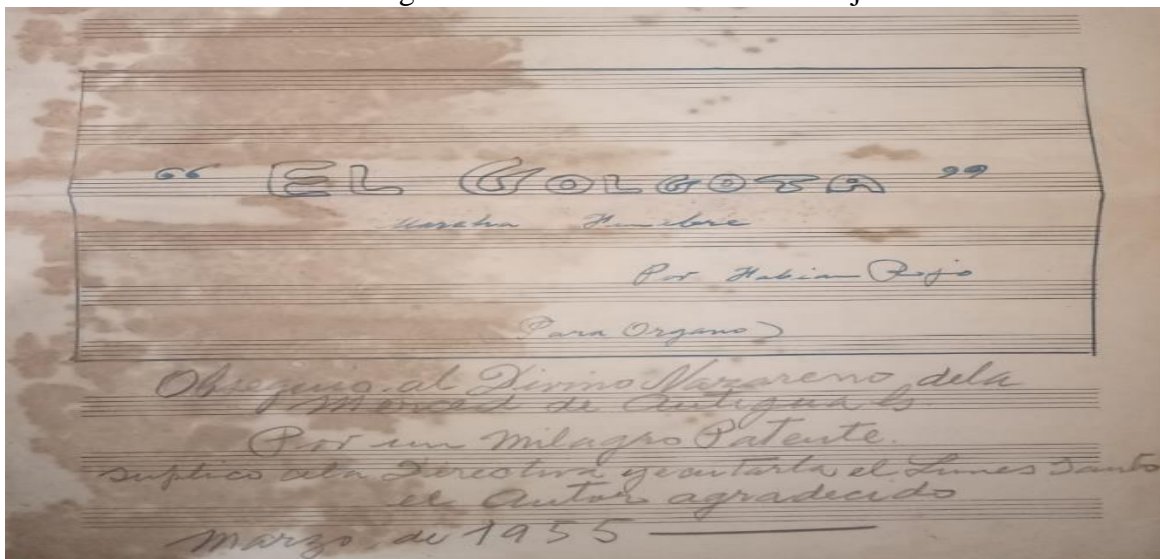 “ EL GOLGOTA ”
Marcha Funebre
Por Fabian Rojo
Para Organo
Obsequio al Divino Nazareno dela
Merced de Antigua G.
Por un Milagro Patente.
suplico ala Directiva ejecutarla el Lunes Santo
el Autor agradecido
Marzo de 1955